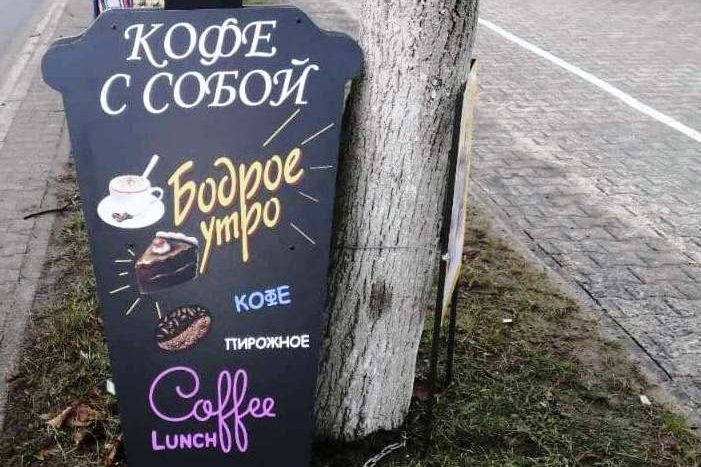 КОФЕ
С СОБОЙ
Бодрое
утро
КОФЕ
ПИРОЖНОЕ
Coffee
LUNCH